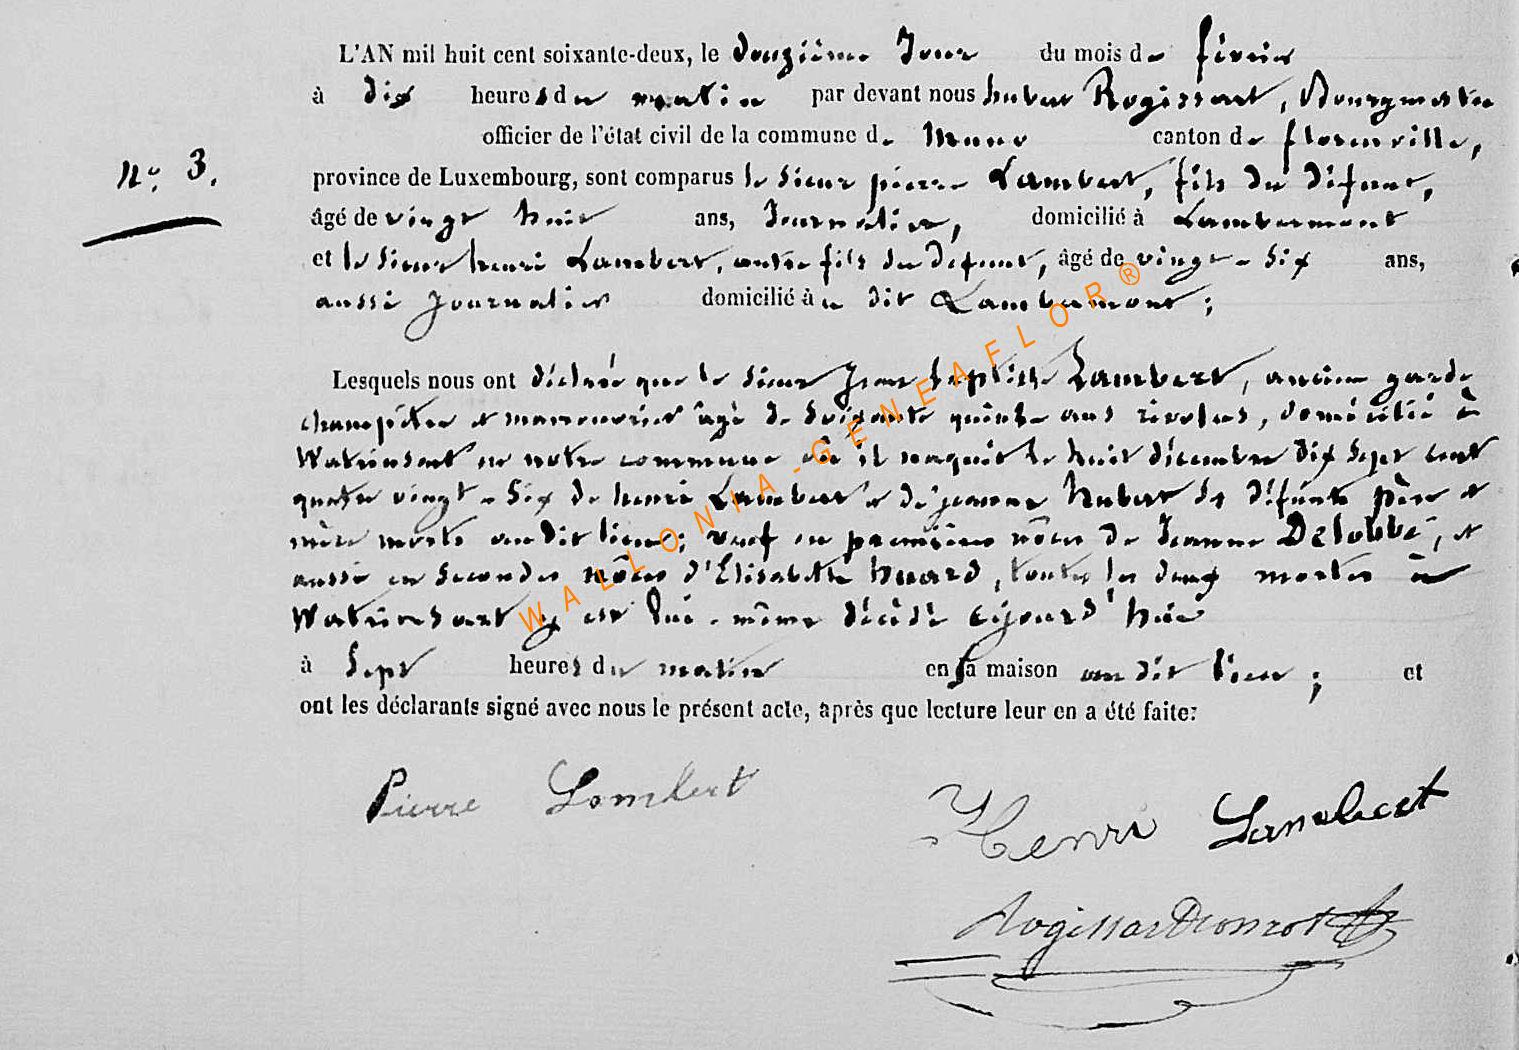 L'AN mil huit cent soixante-deux, le douzième Jour du mois de février
à dix heures du matin par devant nous hubert Rogissart, Bourgmestre
officier de l'état civil de la commune de Muno canton de florenville,
n° 3.
province de Luxembourg, sont comparus le sieur pierre Lambert, fils du défunt,
âgé de vingt huit ans, Journalier, domicilié à Lambermont
et le sieur henri Lambert, autre fils du défunt, âgé de vingt-six ans,
aussi journalier domicilié à u dit Lambermont;
Lesquels nous ont déclaré que le sieur Jean baptiste Lambert, ancien garde
champêtre et manouvrier âgé de soixante quinze ans révolus, domicilié à
Watrinsart en notre commune où il naquit le huit décembre dix sept cent
quatre vingt-six de henri Lambert et de jeanne hubert ses défunts père et
mère morts au dit lieu; veuf en premières nôces de Jeanne Delobbe, et
aussi en secondes nôces d'Elisabeth huard, toutes les deux mortes à
Watrinsart y est lui-même décédé cejourd'hui
à sept heures du matin en sa maison au dit lieu; et
ont les déclarants signé avec nous le présent acte, après que lecture leur en a été faite:
Pierre Lambert
Henri Lambert
WALLONIA-GENEAFLOR®